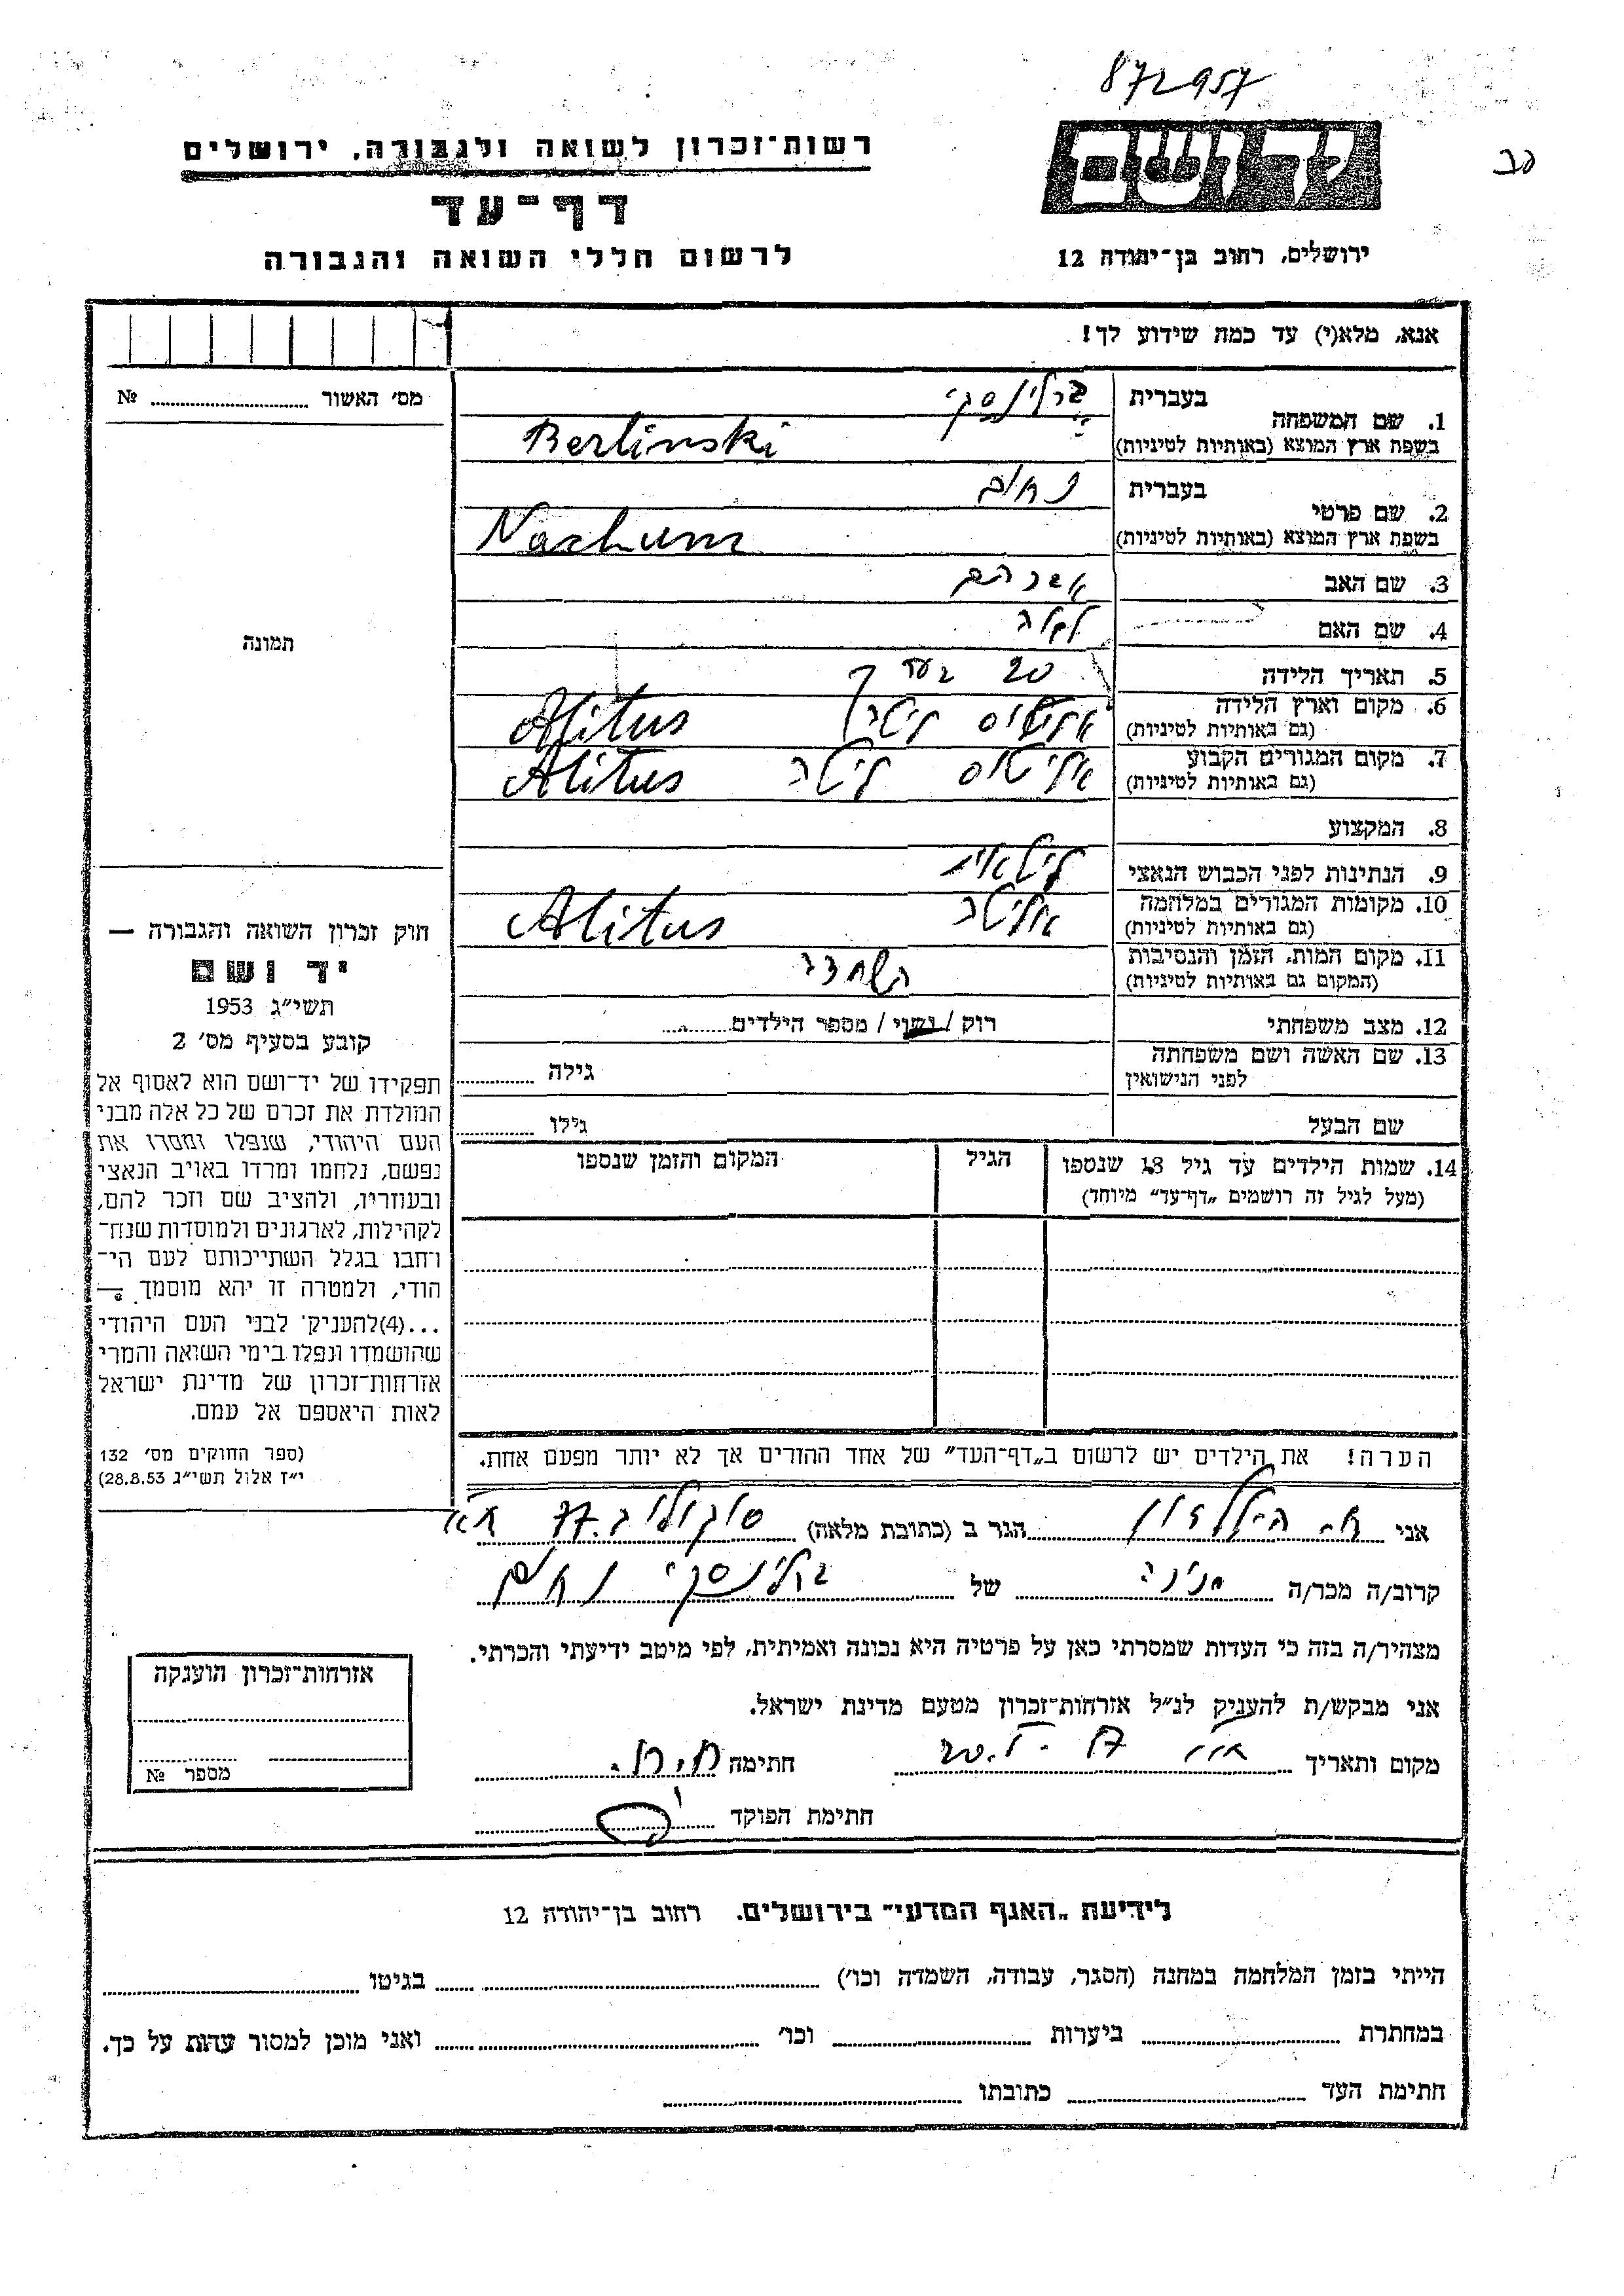 872957
רשות־זכרון לשואה ולגבורה, ירושלים
יד ושם
דף־עד
לרשום חללי השואה והגבורה
ירושלים, רחוב בן־יהודה 12
אנא, מלא(י) עד כמה שידוע לך!
מס׳ האשור № ........
1. שם המשפחה
בעברית ברלינסקי
בשפת ארץ המוצא (באותיות לטיניות) Berlinski
2. שם פרטי
בעברית נחום
בשפת ארץ המוצא (באותיות לטיניות) Nachum
3. שם האב אברהם
4. שם האם
תמונה
5. תאריך הלידה 20 בערך
6. מקום וארץ הלידה אליטוס ליטא Alitus
(גם באותיות לטיניות)
7. מקום המגורים הקבוע אליטוס ליטא Alitus
(גם באותיות לטיניות)
8. המקצוע
9. הנתינות לפני הכבוש הנאצי ליטאית
10. מקומות המגורים במלחמה Alitus
(גם באותיות לטיניות)
11. מקום המות, הזמן והנסיבות
(המקום גם באותיות לטיניות)
12. מצב משפחתי רוק / נשוי / מספר הילדים........
13. שם האשה ושם משפחתה גילה ........
לפני הנישואין
שם הבעל גילו ........
14. שמות הילדים עד גיל 18 שנספו הגיל המקום והזמן שנספו
(מעל לגיל זה רושמים „דף־עד” מיוחד)
הערה! את הילדים יש לרשום ב„דף־העד” של אחד ההורים אך לא יותר מפעם אחת.
חוק זכרון השואה והגבורה —
יד ושם
תשי״ג 1953
קובע בסעיף מס׳ 2
תפקידו של יד־ושם הוא לאסוף אל
המולדת את זכרם של כל אלה מבני
העם היהודי, שנפלו ומסרו את
נפשם, נלחמו ומרדו באויב הנאצי
ובעוזריו, ולהציב שם וזכר להם,
לקהילות, לארגונים ולמוסדות שנח־
רחבו בגלל השתייכותם לעם הי־
הודי, ולמטרה זו יהא מוסמך —
...(4)להעניק לבני העם היהודי
שהושמדו ונפלו בימי השואה והמרי
אזרחות־זכרון של מדינת ישראל
לאות היאספם אל עמם.
(ספר החוקים מס׳ 132
י״ז אלול תשי״ג 28.8.53)
אני הגר ב (כתובת מלאה) סוקולוב 77 ת״א
קרוב/ה מכר/ה של ברלינסקי נחום
מצהיר/ה בזה כי העדות שמסרתי כאן על פרטיה היא נכונה ואמיתית, לפי מיטב ידיעתי והכרתי.
אני מבקש/ת להעניק לנ״ל אזרחות־זכרון מטעם מדינת ישראל.
מקום ותאריך חתימה
חתימת הפוקד ........
אזרחות־זכרון הוענקה
מספר №
לידיעת „האגף המדעי” בירושלים, רחוב בן־יהודה 12
הייתי בזמן המלחמה במחנה (הסגר, עבודה, השמדה וכו׳) ........ בגיטו ........
במחתרת ........ ביערות ........ וכו׳ ........ ואני מוכן למסור עדות על כך.
חתימת העד ........ כתובתו ........